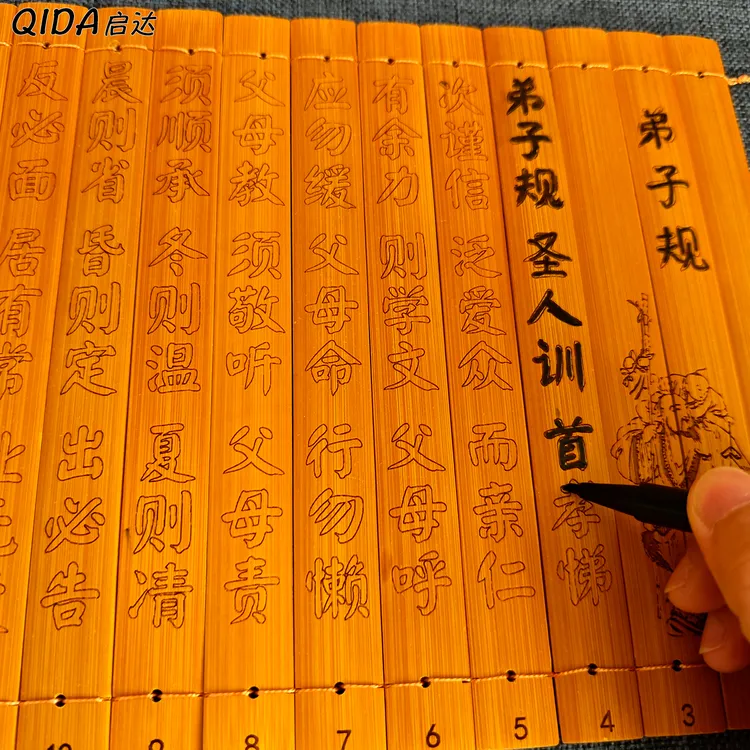 QIDA启达
弟子规
弟子规 圣人训 首孝悌
次谨信 泛爱众 而亲仁
有余力 则学文 父母呼
应勿缓 父母命 行勿懒
父母教 须敬听 父母责
须顺承 冬则温 夏则凊
晨则省 昏则定 出必告
反必面 居有常
3
4
5
6
7
8
9
10